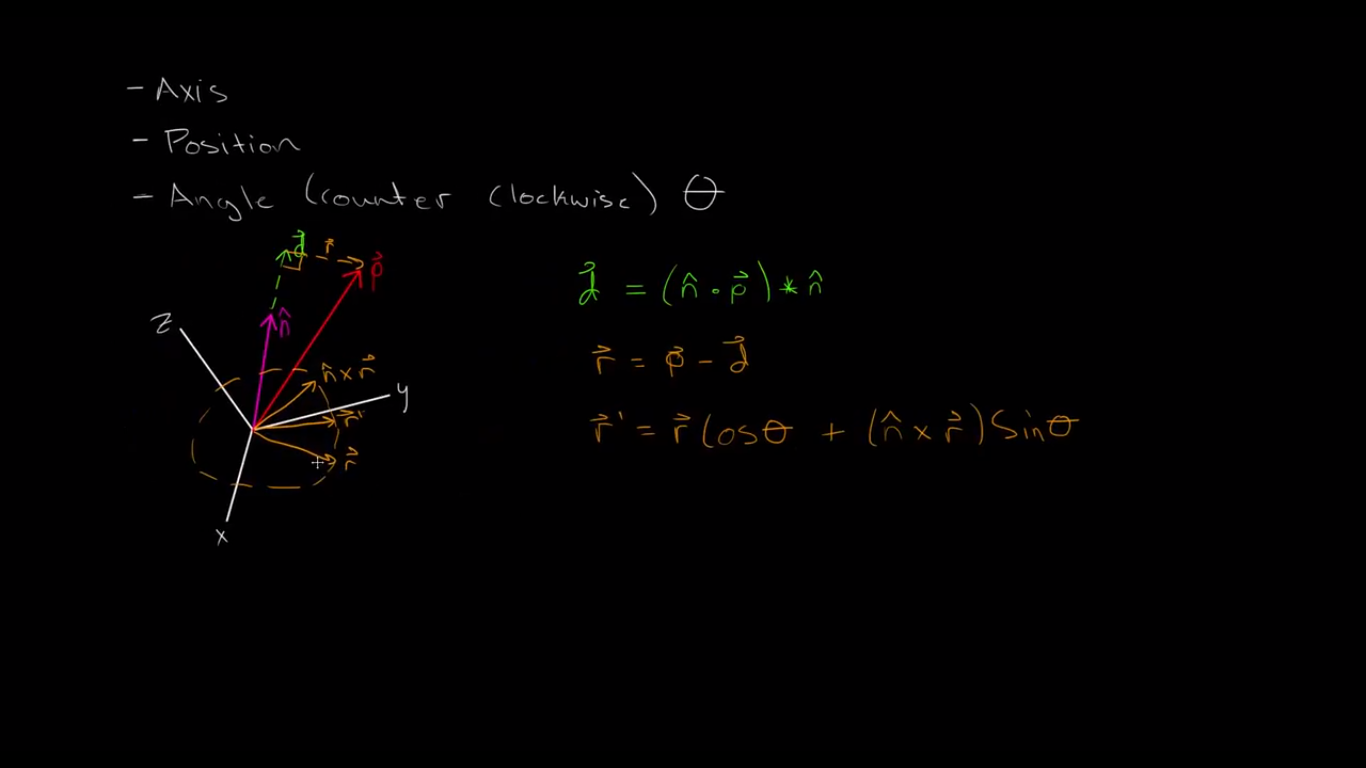 - Axis
- Position
- Angle (counter clockwise) θ
d⃗ r⃗ p⃗
n̂
z
n̂ × r⃗
y
r⃗'
r⃗
x
d⃗ = (n̂ · p⃗) * n̂
r⃗ = p⃗ - d⃗
r⃗' = r⃗ Cosθ + (n̂ × r⃗) Sinθ